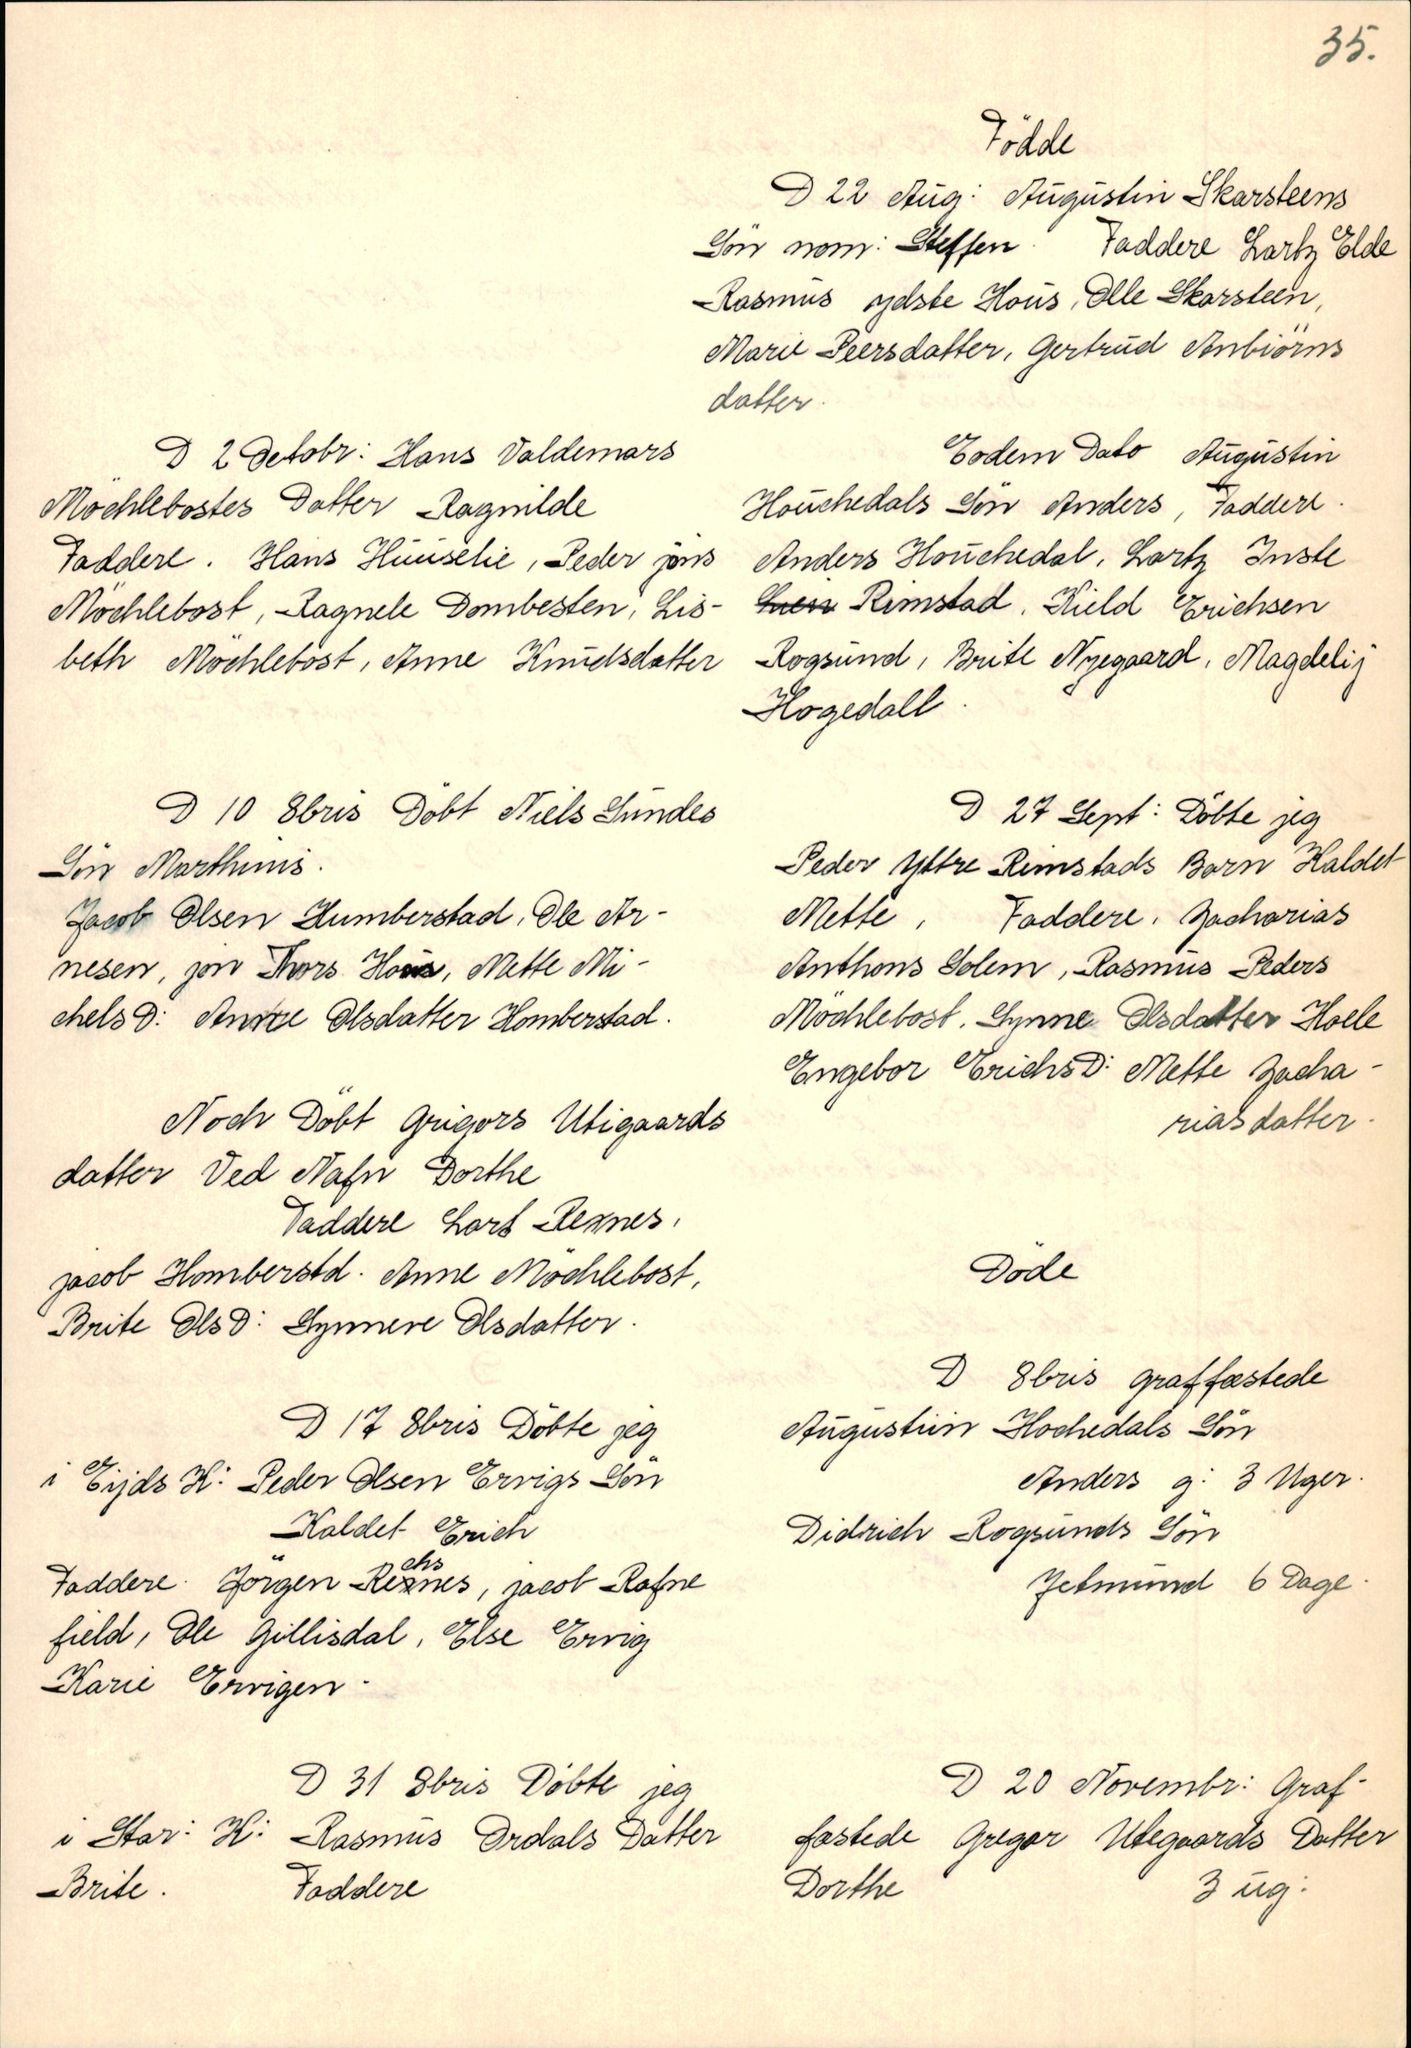 35.
Födde
D 22 Aug: Augustin Skarsteens
Sön nom: Steffen. Faddere Lartz Elde
Rasmus ydste Hous, Olle Skarsteen,
Marie Peersdatter, Gertrud Anbiörns
datter.
Eodem Dato Augustin
Houchedals Sön Anders, Faddere.
Anders Houchedal, Lartz Inste
Rimstad, Kield Erichsen
Rogsund, Brite Nyegaard, Magdelij
Hogedall.
D 27 Sept: Döbte jeg
Peder Yttre Rimstads Barn Kaldet
Mette, Faddere, Zacharias
Anthons Solem, Rasmus Peders
Möchlebost, Synne Olsdatter Hoele
Engebor ErichsD: Mette Zacha-
riasdatter.
Döde
D 8bris graffæstede
Augustiin Hochedals Sön
Anders g: 3 Uger.
Didrich Rogsunds Sön
Jetmund 6 Dage.
D 20 Novembr: Graf-
fæstede Gregar Utegaards Datter
Dorthe 3 ug:
D 2 Octobr: Hans Valdemars
Möchlebostes Datter Ragnilde
Faddere. Hans Huuselie, Peder jöns
Möchlebost, Ragnele Dombesten, Lis-
beth Möchlebost, Anne Knudsdatter
D 10 8bris Döbt Niels Sundes
Sön Marthinis.
Jacob Olsen Humberstad, Ole Ar-
nesen, jon Thors Hous, Mette Mi-
chelsD: Anne Olsdatter Homberstad.
Noch Döbt Grigors Utigaards
datter Ved Nafn Dorthe
Faddere Lars Rexnes,
jacob Homberstd. Anne Möchlebost,
Brite OlsD: Synneve Olsdatter.
D 17 8bris Döbte jeg
i Eijds K: Peder Olsen Ervigs Sön
Kaldet Erich
chs
Faddere Jörgen Rexnes, jacob Rafne
field, Ole Gillisdal, Else Ervig
Karie Ervigen.
D 31 8bris Döbte jeg
i Star: K: Rasmus Ordals Datter
Brite. Faddere